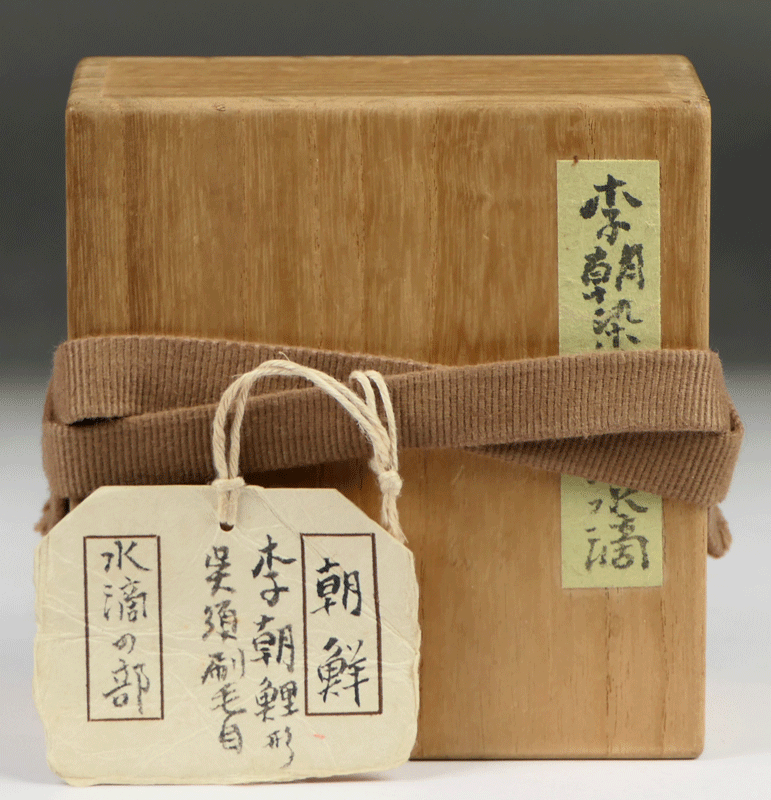 李朝染
水滴
朝鮮
李朝鯉形
呉須刷毛目
水滴の部